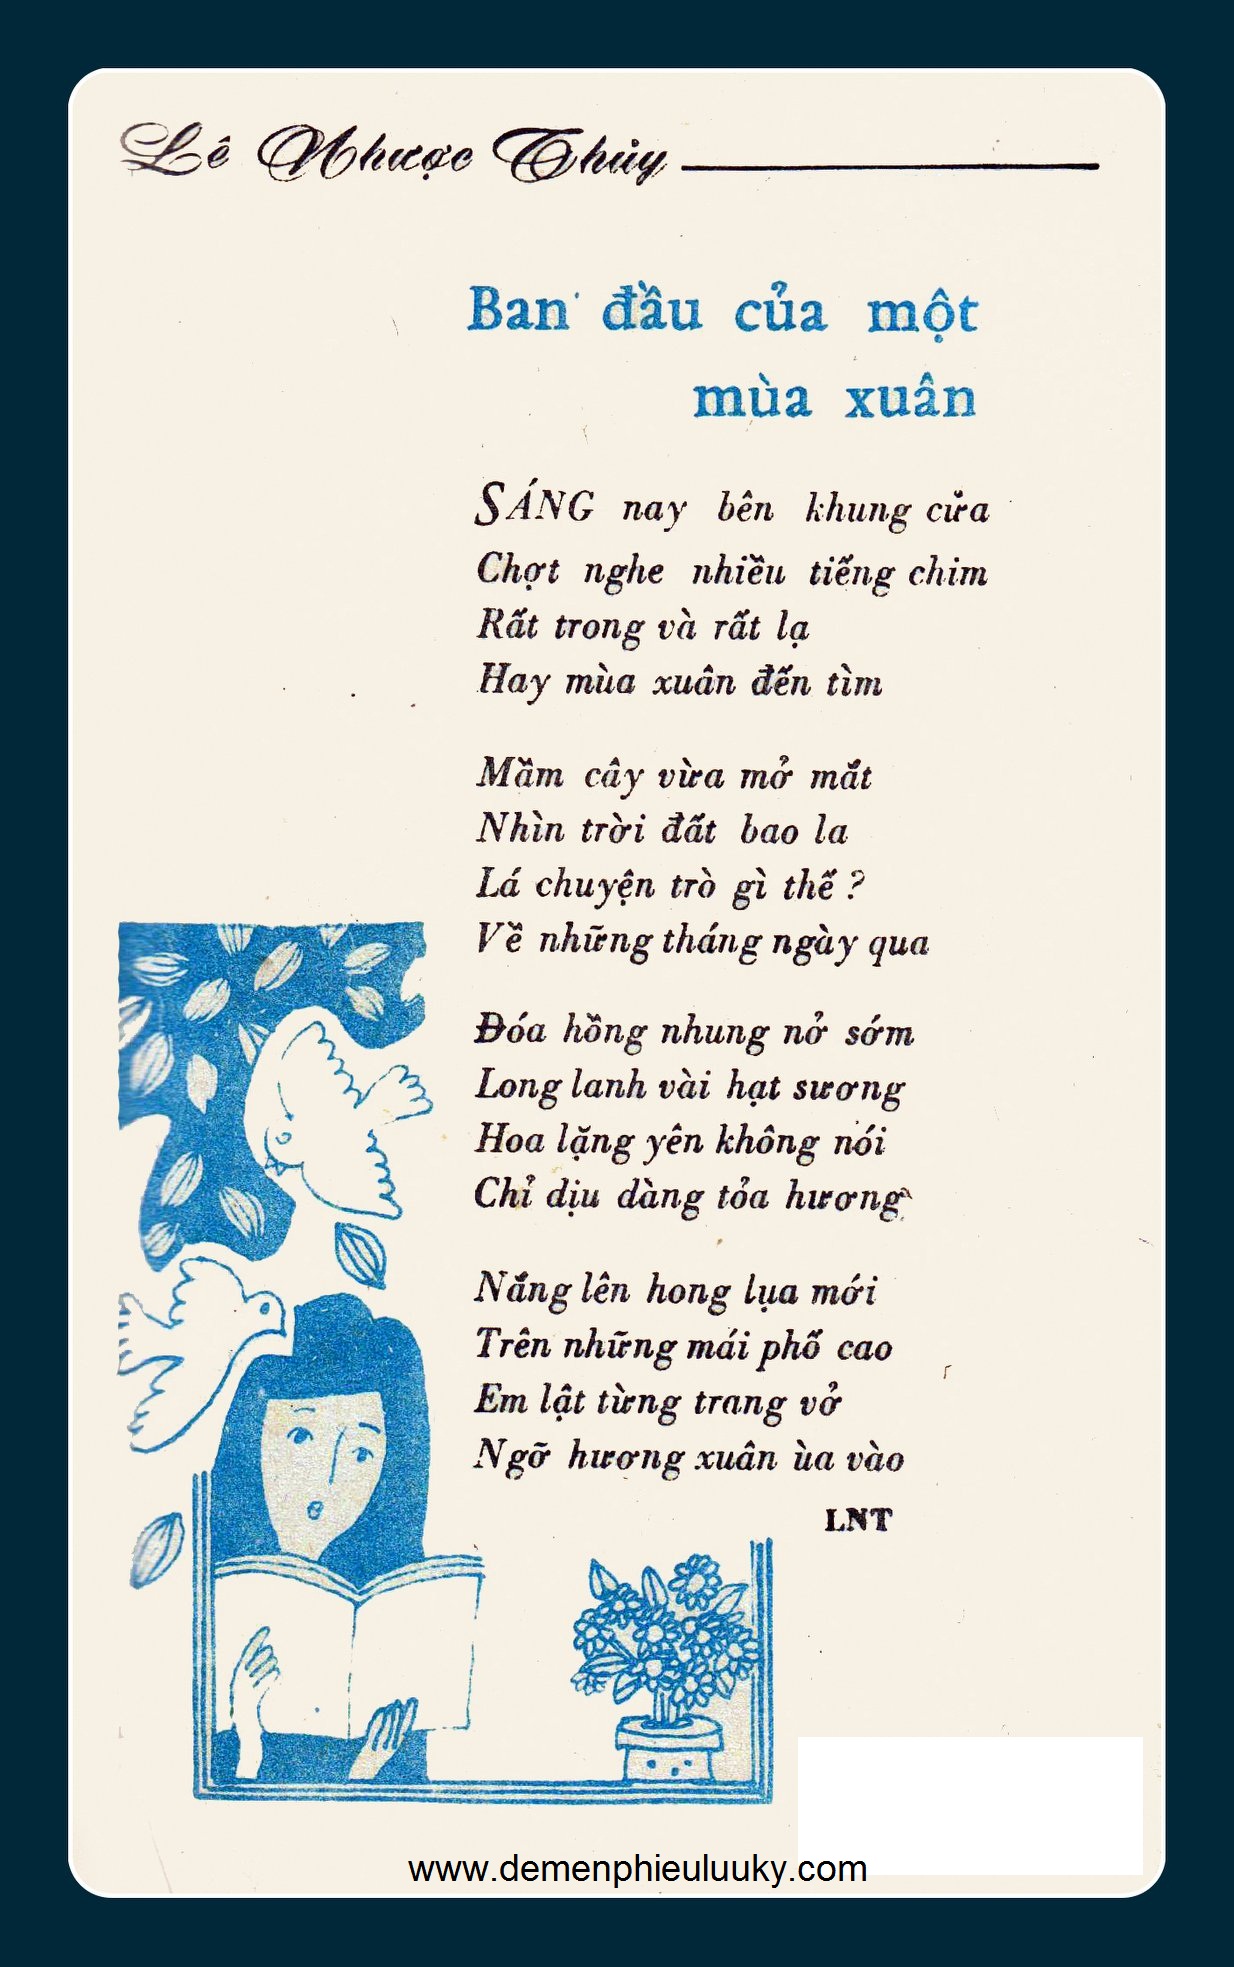 Lê Nhược Thủy
Ban đầu của một
mùa xuân
SÁNG nay bên khung cửa
Chợt nghe nhiều tiếng chim
Rất trong và rất lạ
Hay mùa xuân đến tìm
Mầm cây vừa mở mắt
Nhìn trời đất bao la
Lá chuyện trò gì thế ?
Về những tháng ngày qua
Đóa hồng nhung nở sớm
Long lanh vài hạt sương
Hoa lặng yên không nói
Chỉ dịu dàng tỏa hương
Nắng lên hong lụa mới
Trên những mái phố cao
Em lật từng trang vở
Ngỡ hương xuân ùa vào
LNT
www.demenphieuluuky.com